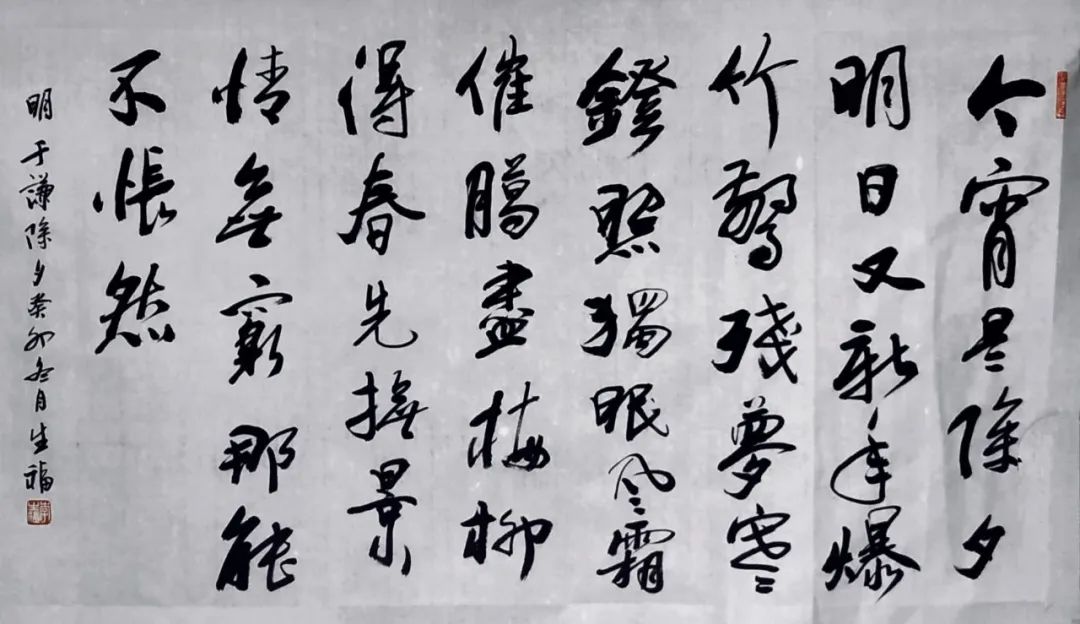 今宵是除夕
明日又新年爆
竹驚殘夢寒
鐙照獨眠风霜
催臈盡梅柳
得春先撫景
情無窮那能
不悵然
明于謙除夕癸卯冬月生福